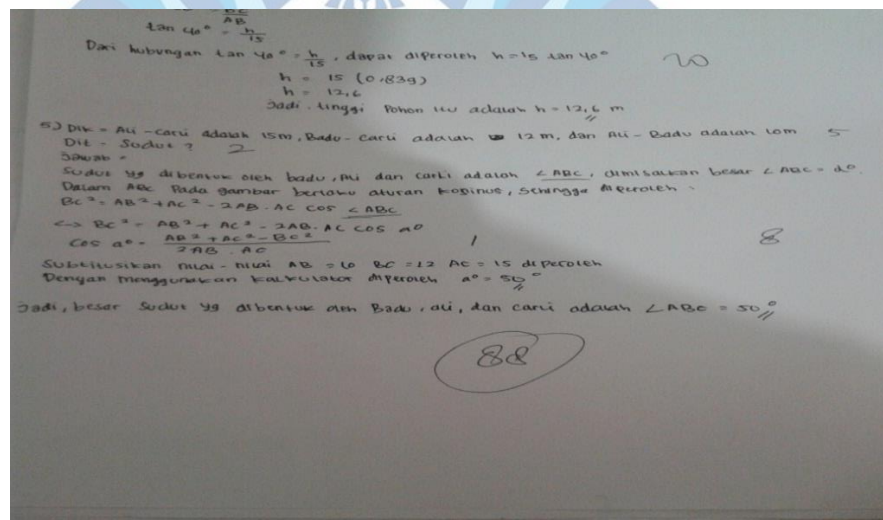 BC
AB
tan 40° = h/15
Dari hubungan tan 40° = h/15, dapat diperoleh h = 15 tan 40° 20
h = 15 (0,839)
h = 12,6
Jadi, tinggi Pohon itu adalah h = 12,6 m
5) Dik = Ali - Carli adalah 15m, Badu - Carli adalah 12 m, dan Ali - Badu adalah 10m 5
Dit = Sudut ? 2
Jawab =
Sudut yg dibentuk oleh badu, Ali dan carli adalah ∠ABC, dimisalkan besar ∠ABC = a°.
Dalam ABC Pada gambar berlaku aturan kosinus, sehingga diperoleh
BC² = AB² + AC² - 2AB . AC cos ∠ABC
<-> BC² = AB² + AC² - 2AB. AC COS a°
Cos a° = AB² + AC² - BC² / 2AB . AC 1 8
Substitusikan nilai - nilai AB = 10 BC = 12 AC = 15 diperoleh
Dengan menggunakan kalkulator diperoleh a° = 50°
Jadi, besar sudut yg dibentuk oleh Badu, ali, dan carli adalah ∠ABC = 50°
88